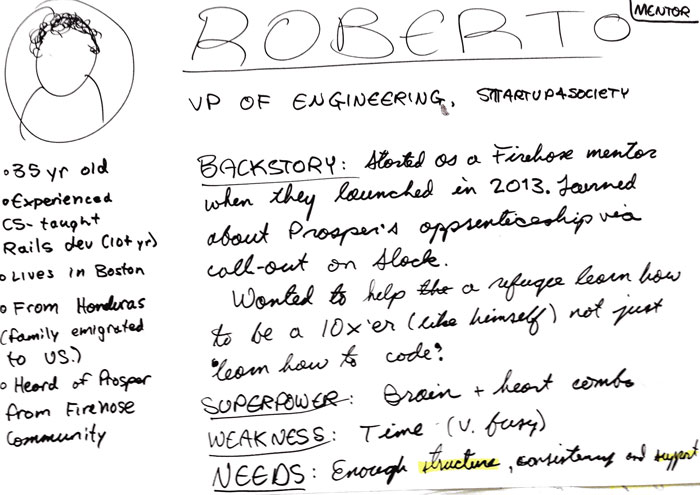 ROBERTO
MENTOR
VP OF ENGINEERING, STARTUP4SOCIETY
• 35 yr old
• Experienced
CS-taught
Rails dev (10+ yr)
• Lives in Boston
• From Honduras
(family emigrated
to US.)
• Heard of Prosper
from Firehose
Community
BACKSTORY: Started as a Firehose mentor
when they launched in 2013. Learned
about Prosper's apprenticeship via
call-out on Slack.
Wanted to help the a refugee learn how
to be a 10x'er (like himself) not just
"learn how to code".
SUPERPOWER: Brain + heart combo
WEAKNESS: Time (v. busy)
NEEDS: Enough structure, consistency and support